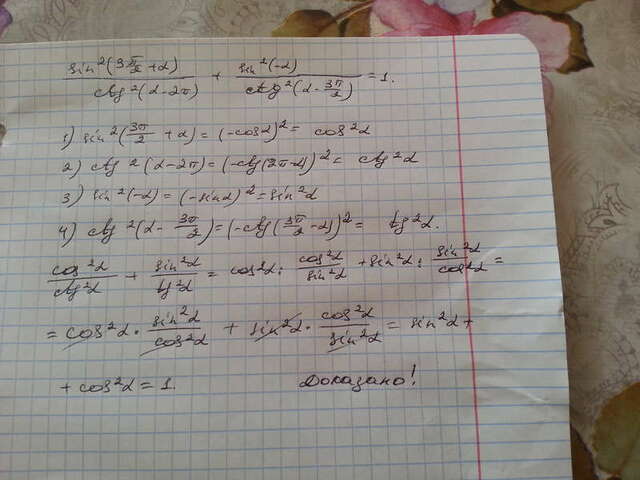 sin²(3π/2+α)/ctg²(α-2π) + sin²(-α)/ctg²(α-3π/2) = 1.
1) sin²(3π/2 + α) = (-cosα)² = cos²α
2) ctg²(α-2π) = (-ctg(2π-α))² = ctg²α
3) sin²(-α) = (-sinα)² = sin²α
4) ctg²(α-3π/2) = (-ctg(3π/2-α))² = tg²α.
cos²α/ctg²α + sin²α/tg²α = cos²α : cos²α/sin²α + sin²α : sin²α/cos²α =
= cos²α · sin²α/cos²α + sin²α · cos²α/sin²α = sin²α +
+ cos²α = 1. Доказано!